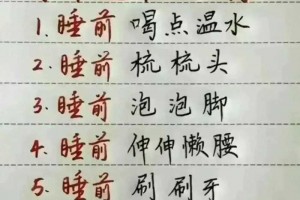 1.睡前 喝点温水
2.睡前 梳梳头
3.睡前 泡泡脚
4.睡前 伸伸懒腰
5.睡前 刷刷牙